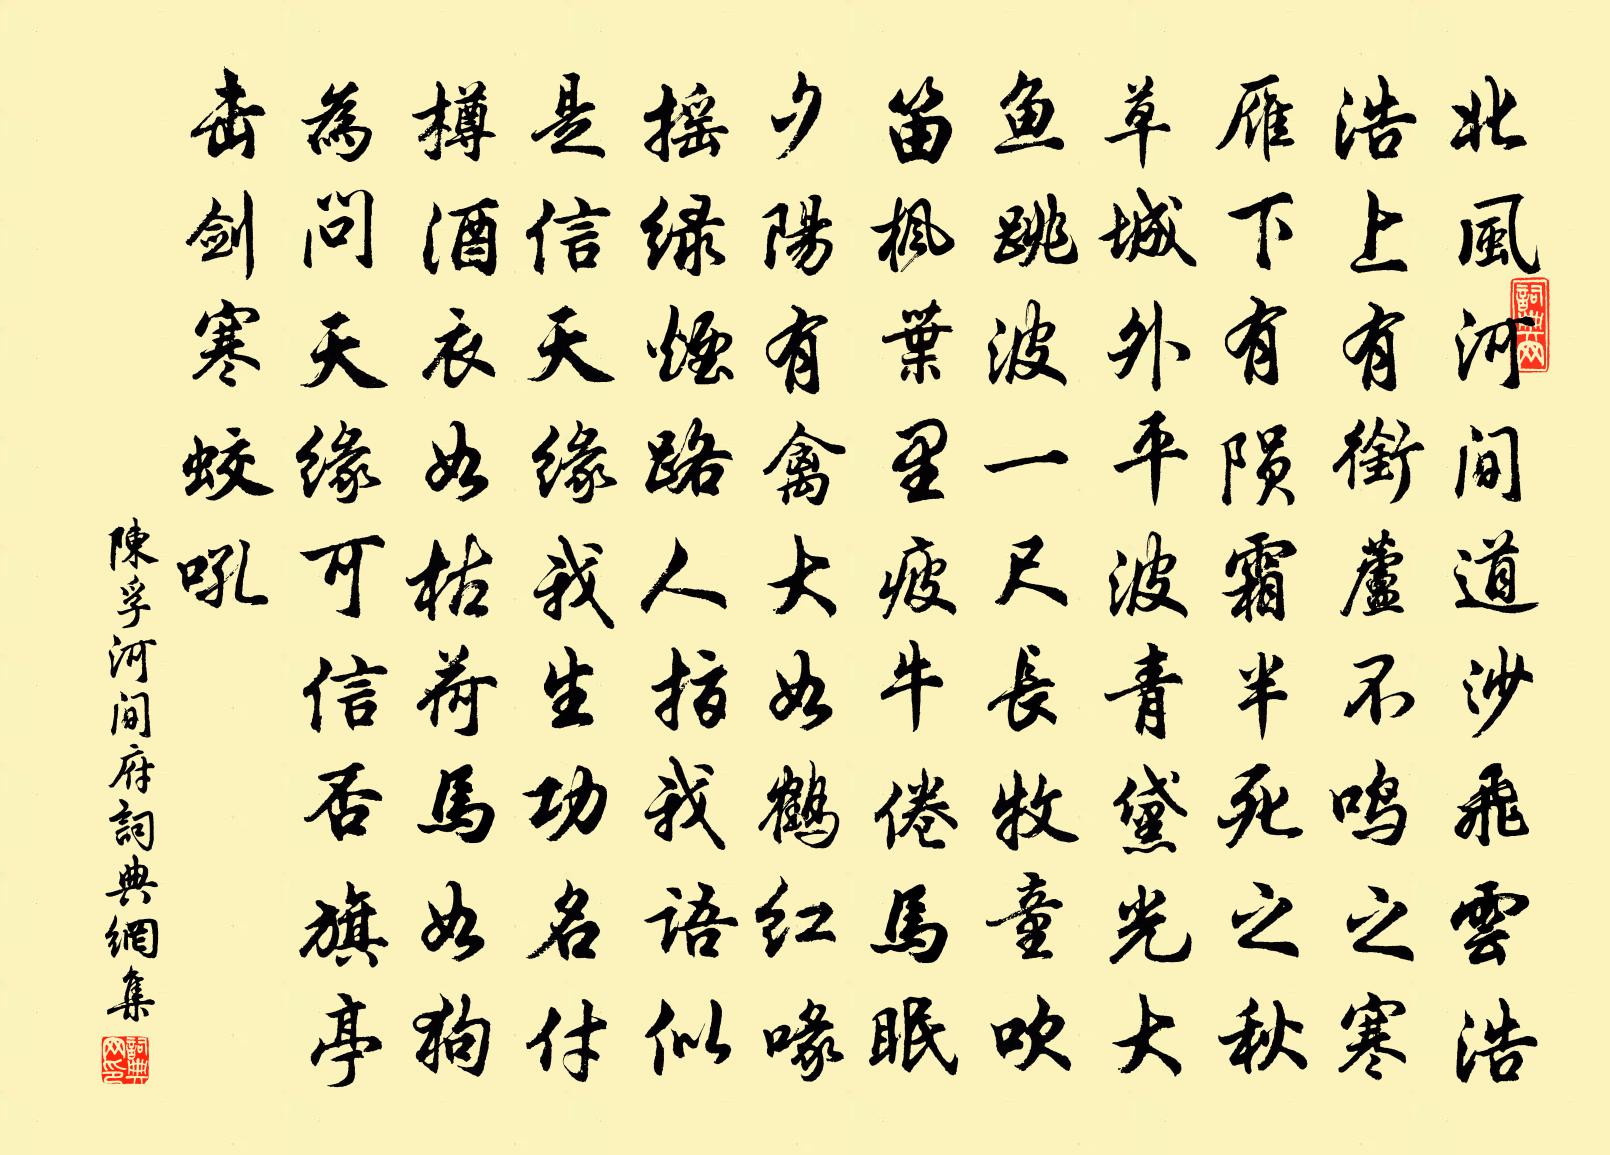 北風河间道沙飛雲浩
浩上有銜蘆不鸣之寒
雁下有陨霜半死之秋
草城外平波青黛光大
鱼跳波一尺長牧童吹
笛楓葉里疲牛倦馬眠
夕陽有禽大如鹤红喙
摇绿煙路人指我语似
是信天缘我生功名付
樽酒衣如枯荷馬如狗
為问天缘可信否旗亭
击剑寒蛟吼
陳孚河间府詞典網集
詞典网
詞典网印